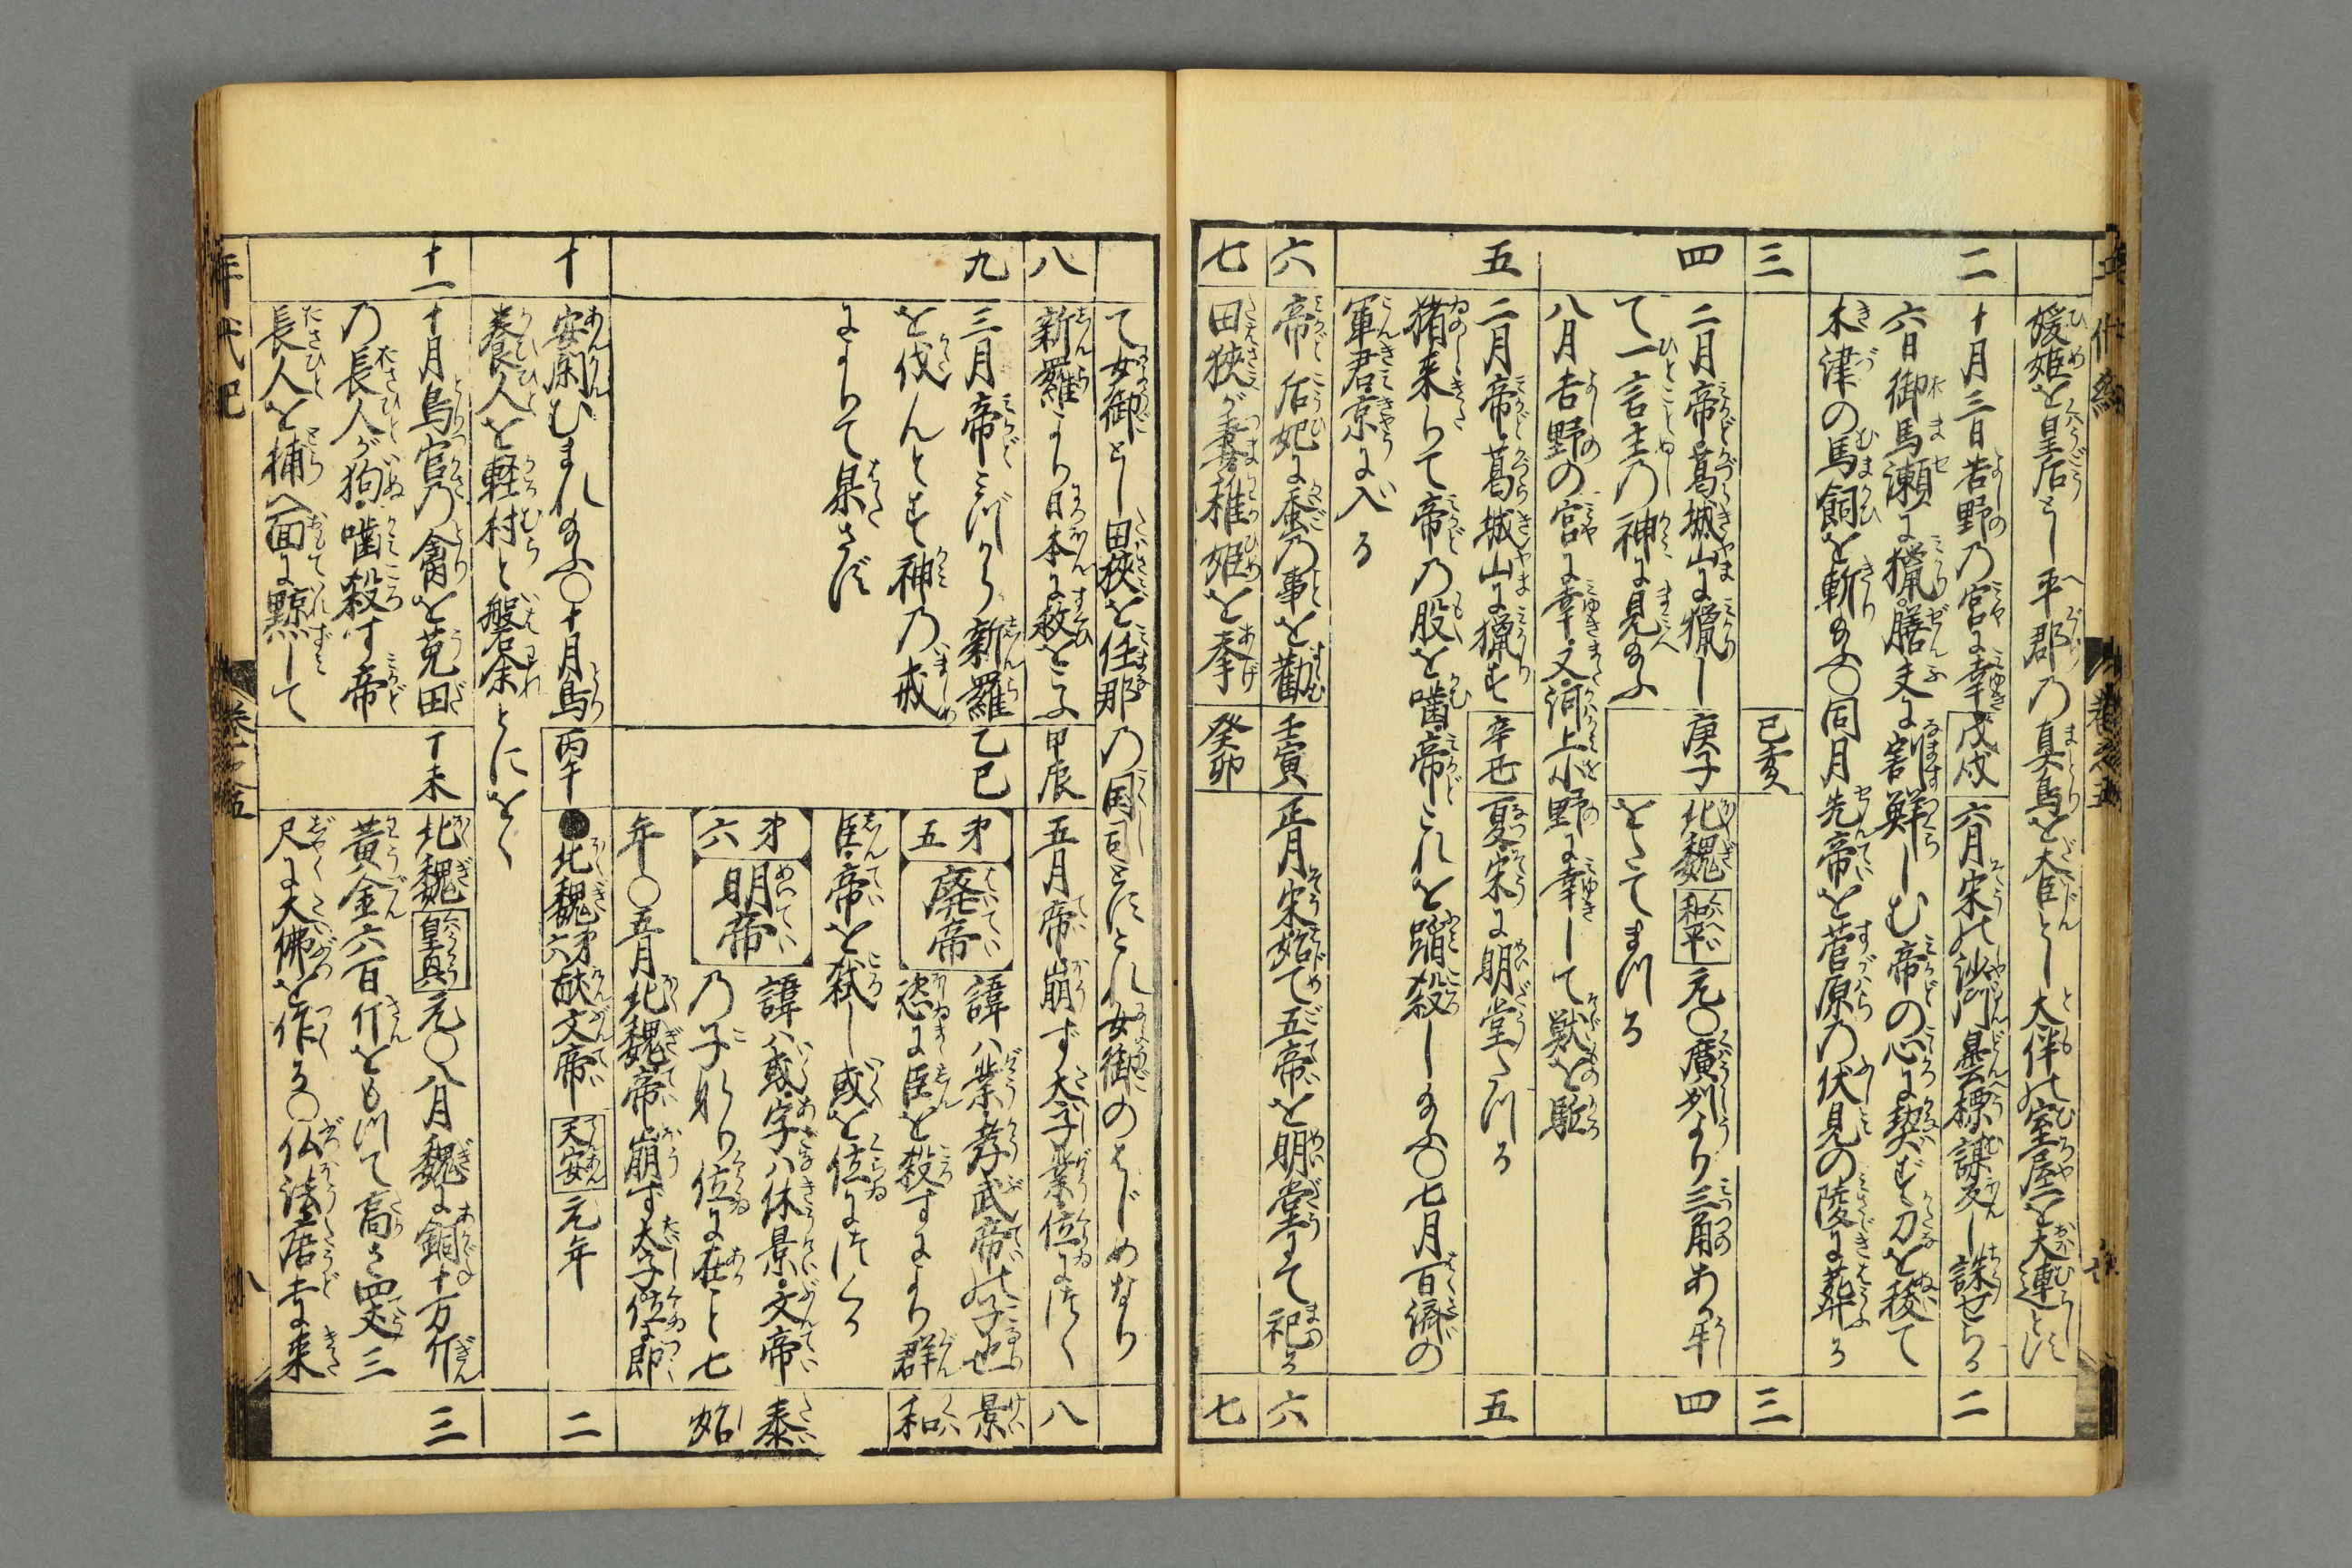 媛姫を皇后とし平郡乃真鳥を大臣とし大伴の室屋を大連とす
二
十月三日吉野乃宮に幸
戊戌
六月宋の沙門曇標謀反し誅せらる
二
六日御馬瀬に猟膳夫に割鮮しむ帝の心に契ず刀を稜て
木津の馬飼を斬給ふ〇同月先帝を菅原乃伏見の陵に葬る
三
己亥
三
四
二月帝葛城山に猟し
庚子
北魏和平元〇廣州より三角ある牛
四
て一言主乃神に見給ふ
をたてまつる
八月吉野の宮に幸又河上小野に幸して獣を駈
五
二月帝葛城山に猟す
辛丑
夏宋に明堂たつる
五
猪来りて帝乃股を噛帝これを蹈殺し給ふ〇七月百済の
軍君京に入る
六
帝后妃に蚕乃事を勸
壬寅
正月宋始て五帝を明堂にて祀る
六
七
田狭が妻稚姫を奉
癸卯
七
て女御とし田狭を任那乃国司とすこれ女御のはじめなり
八
新羅より日本に救をこふ
甲辰
五月帝崩ず太子業位につく
八
九
三月帝みづから新羅
乙巳
第五
廃帝
諱ハ業孝武帝の子也
景
を伐んとす神乃戒
恣に臣を殺すにより群
和
によりて果さず
臣帝を弑し彧を位につくる
第六
明帝
諱ハ彧字ハ休景文帝
泰
乃子なり位に在こと七
始
年〇五月北魏帝崩ず太子位に即
十
安閑むまれ給ふ〇十月鳥
丙午
●北魏第六献文帝天安元年
二
養人を軽村と磐余とにをく
十一
十月鳥官乃禽を菟田
丁未
北魏皇興元〇八月魏に銅十万斤
三
乃長人が狗噛殺す帝
黄金六百斤をもつて高さ四丈三
長人を捕へ面に黥して
尺に大佛を作る〇仏法唐土に来
年代記
巻之五
八